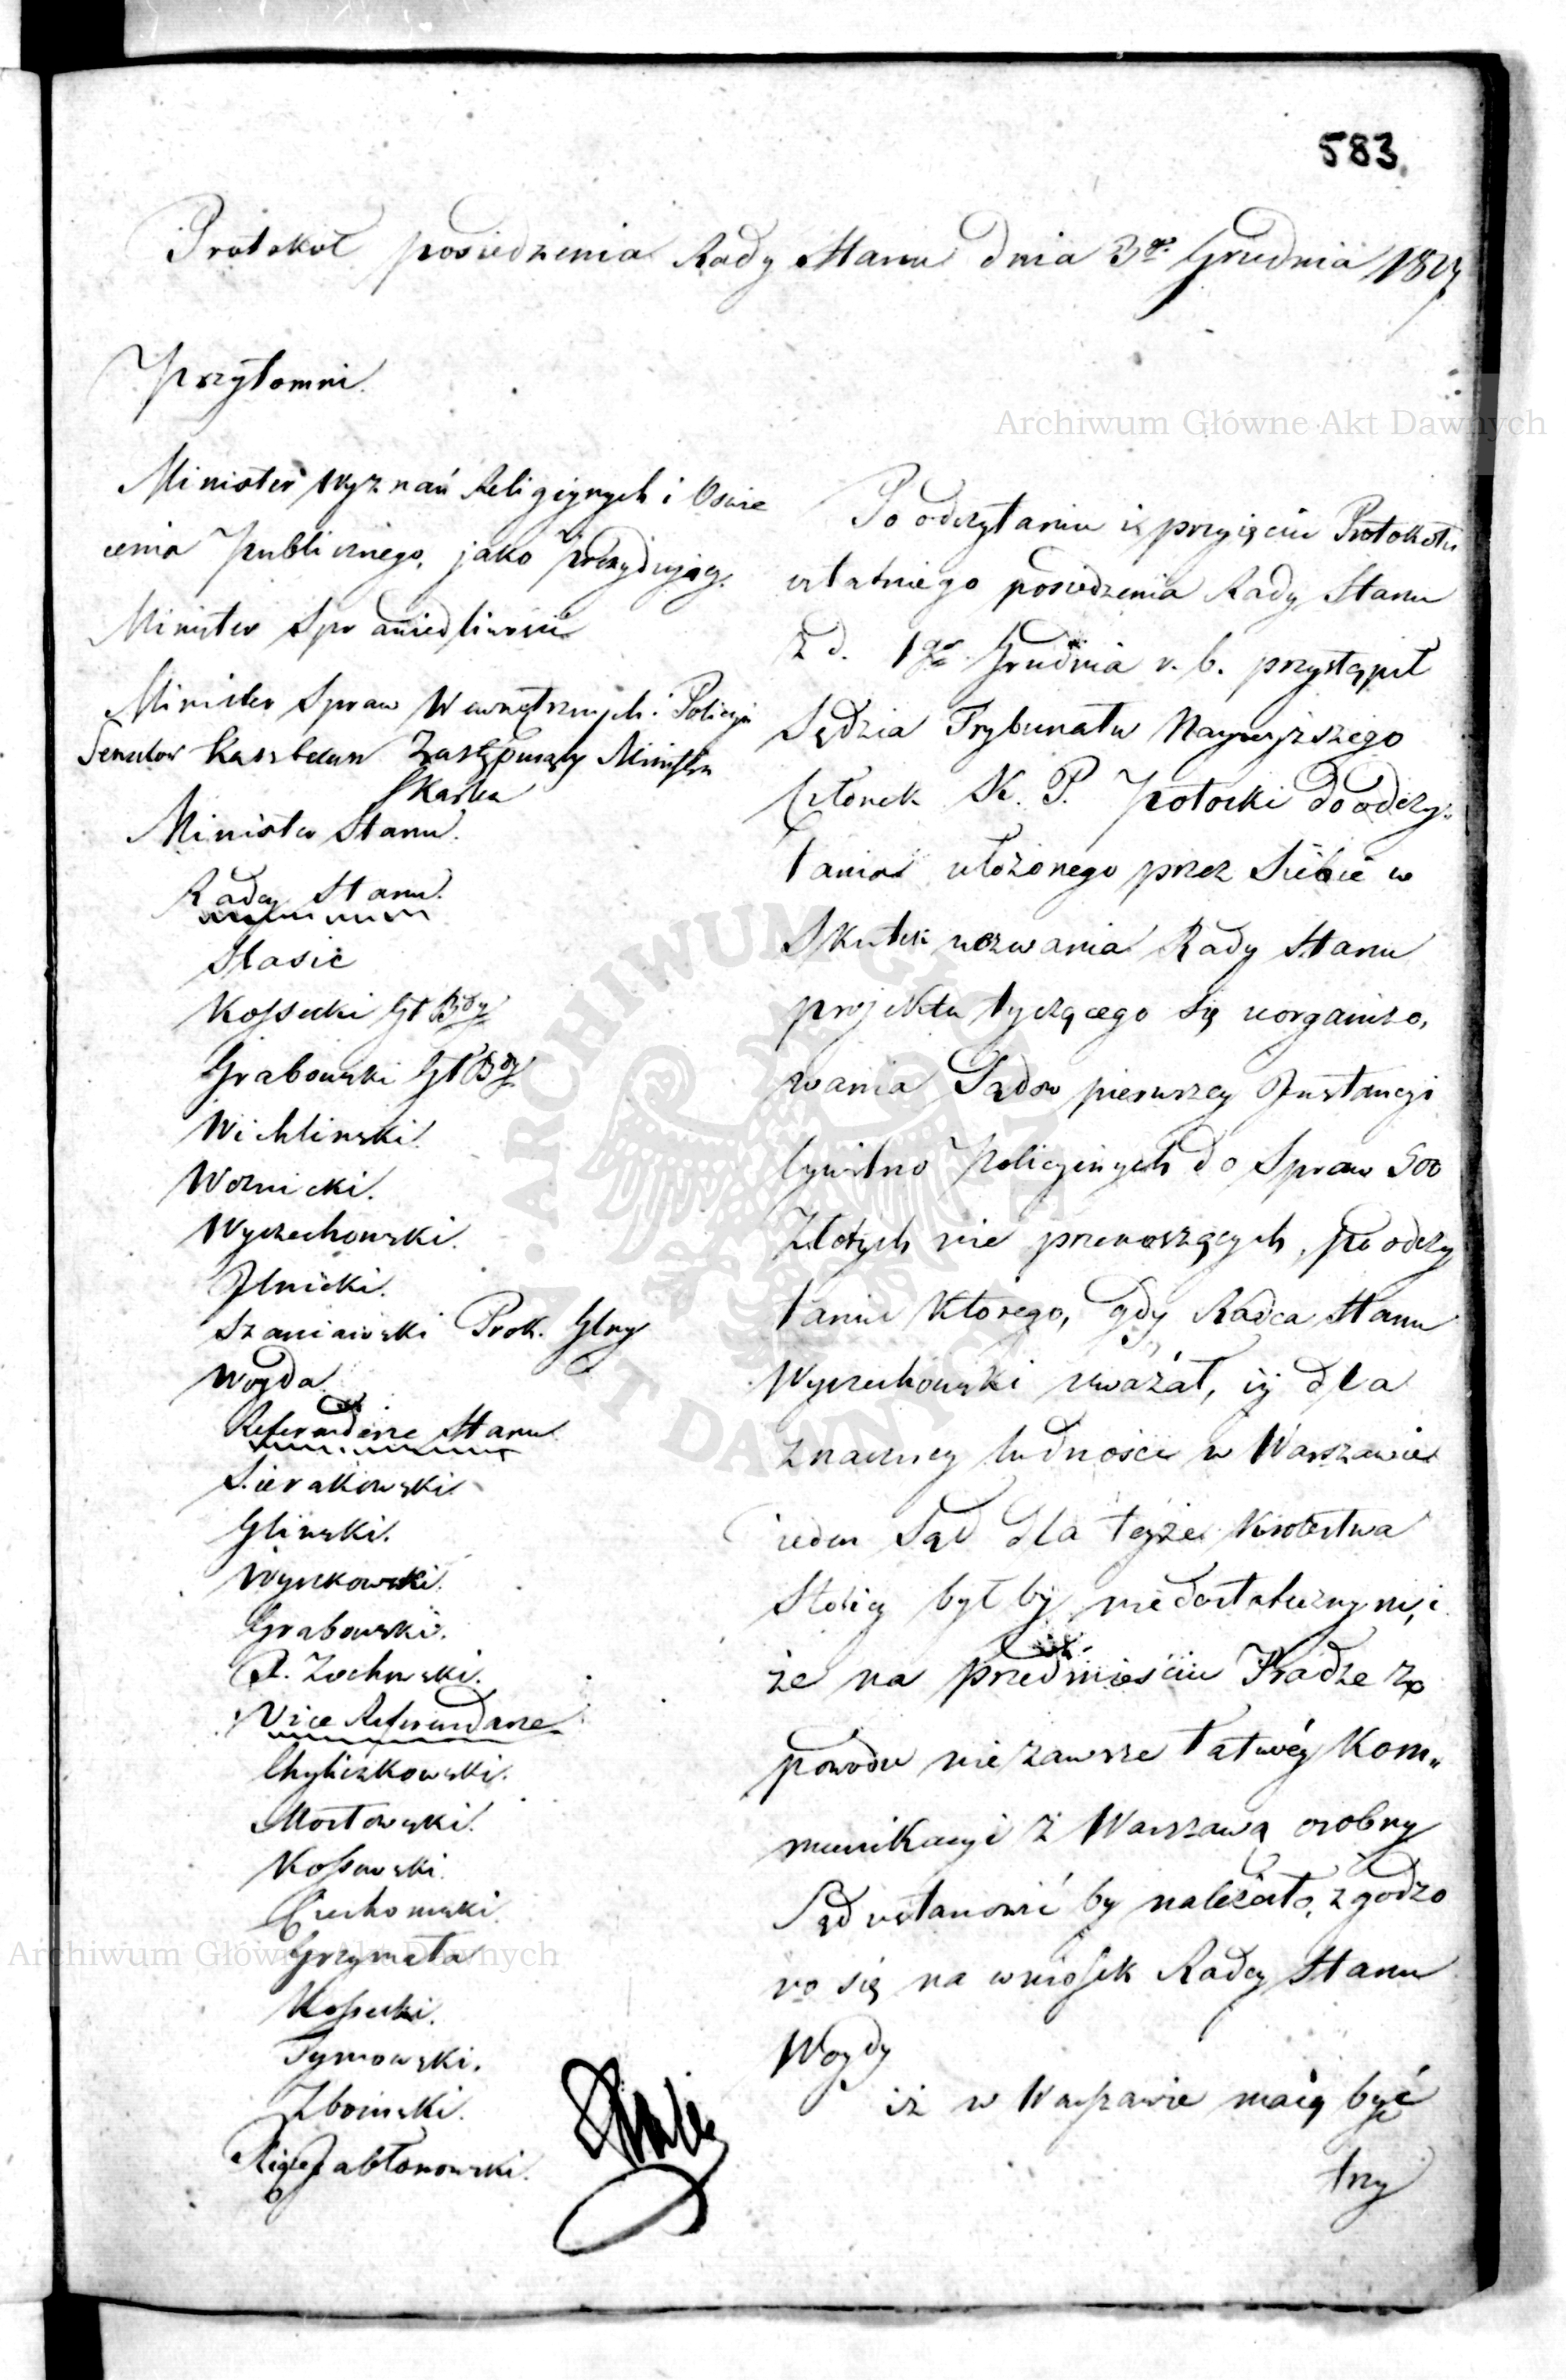 583
Protokół posiedzenia Rady Stanu dnia 3go Grudnia
Przytomni.
Minister Wyznań Religiynych i Oświe
cenia Publicznego, jako Prezydujący.
Minister Sprawiedliwości
Minister Spraw Wewnętrznych i Policyi
Senator Kasztelan Zastępujący Ministra
Skarbu
Minister Stanu.
Radcy Stanu.
Stasic
Kossecki Gł Bdy
Grabowski Gł Bdy
Wichlinski
Woznicki.
Wyczechowski.
Jlnicki.
Szaniawski Prok. Glny
Woyda
Referendarze Stanu
Sierakowski
Glinski.
Wyszkowski.
Grabowski.
Zochowski.
Vice Referendarze
Chyliczkowski.
Mostowski.
Kossowski.
Ciechomski.
Grzymała
Kossecki.
Tymowski.
Zboinski.
Xiąże Jabłonowski.
Po odczytaniu i przyięciu Protokołu
ostatniego posiedzenia Rady Stanu
z d. 1go Grudnia r. b. przystąpił
Sędzia Trybunału Naywyższego
Członek K. P. Potocki do odczy-
tania ułożonego przez Siebie w
Skutek wezwania Rady Stanu
projektu tyczącego się uorganizo,
wania Sądów pierwszey Instancyi
Cywilno Policyinych do Spraw 500
Złotych nie przenoszących, po odczy
taniu którego, gdy Radca Stanu
Wyczechowski uważał, iż dla
znaczney ludności w Warszawie
ieden Sąd dla teyże Królestwa
Stolicy byłby niedostatecznym, i
że na przedmieściu Pradze z
powodu nie zawsze łatwéy Kom„
munikacyi z Warszawą osobny
Sąd ustanowić by należało, zgodzo
no się na wniosek Radcy Stanu
Woydy
iż w Warszawie maią być
trzy
Archiwum Główne Akt Dawnych
Archiwum Główne Akt Dawnych